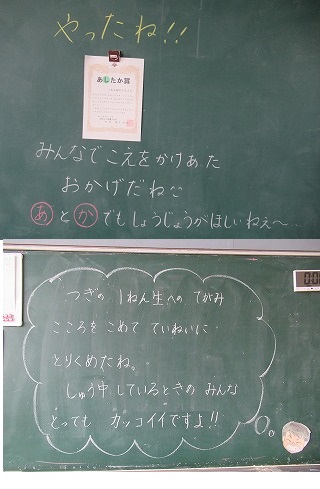 やったね!!
あしたか賞
みんなでこえをかけあった
おかげだね
あとかでもしょうじょうがほしいねぇ〜…
つぎの 1ねん生への てがみ
こころを こめて ていねいに
とりくめたね。
しゅう中 しているときの みんな
とっても カッコイイですよ!!